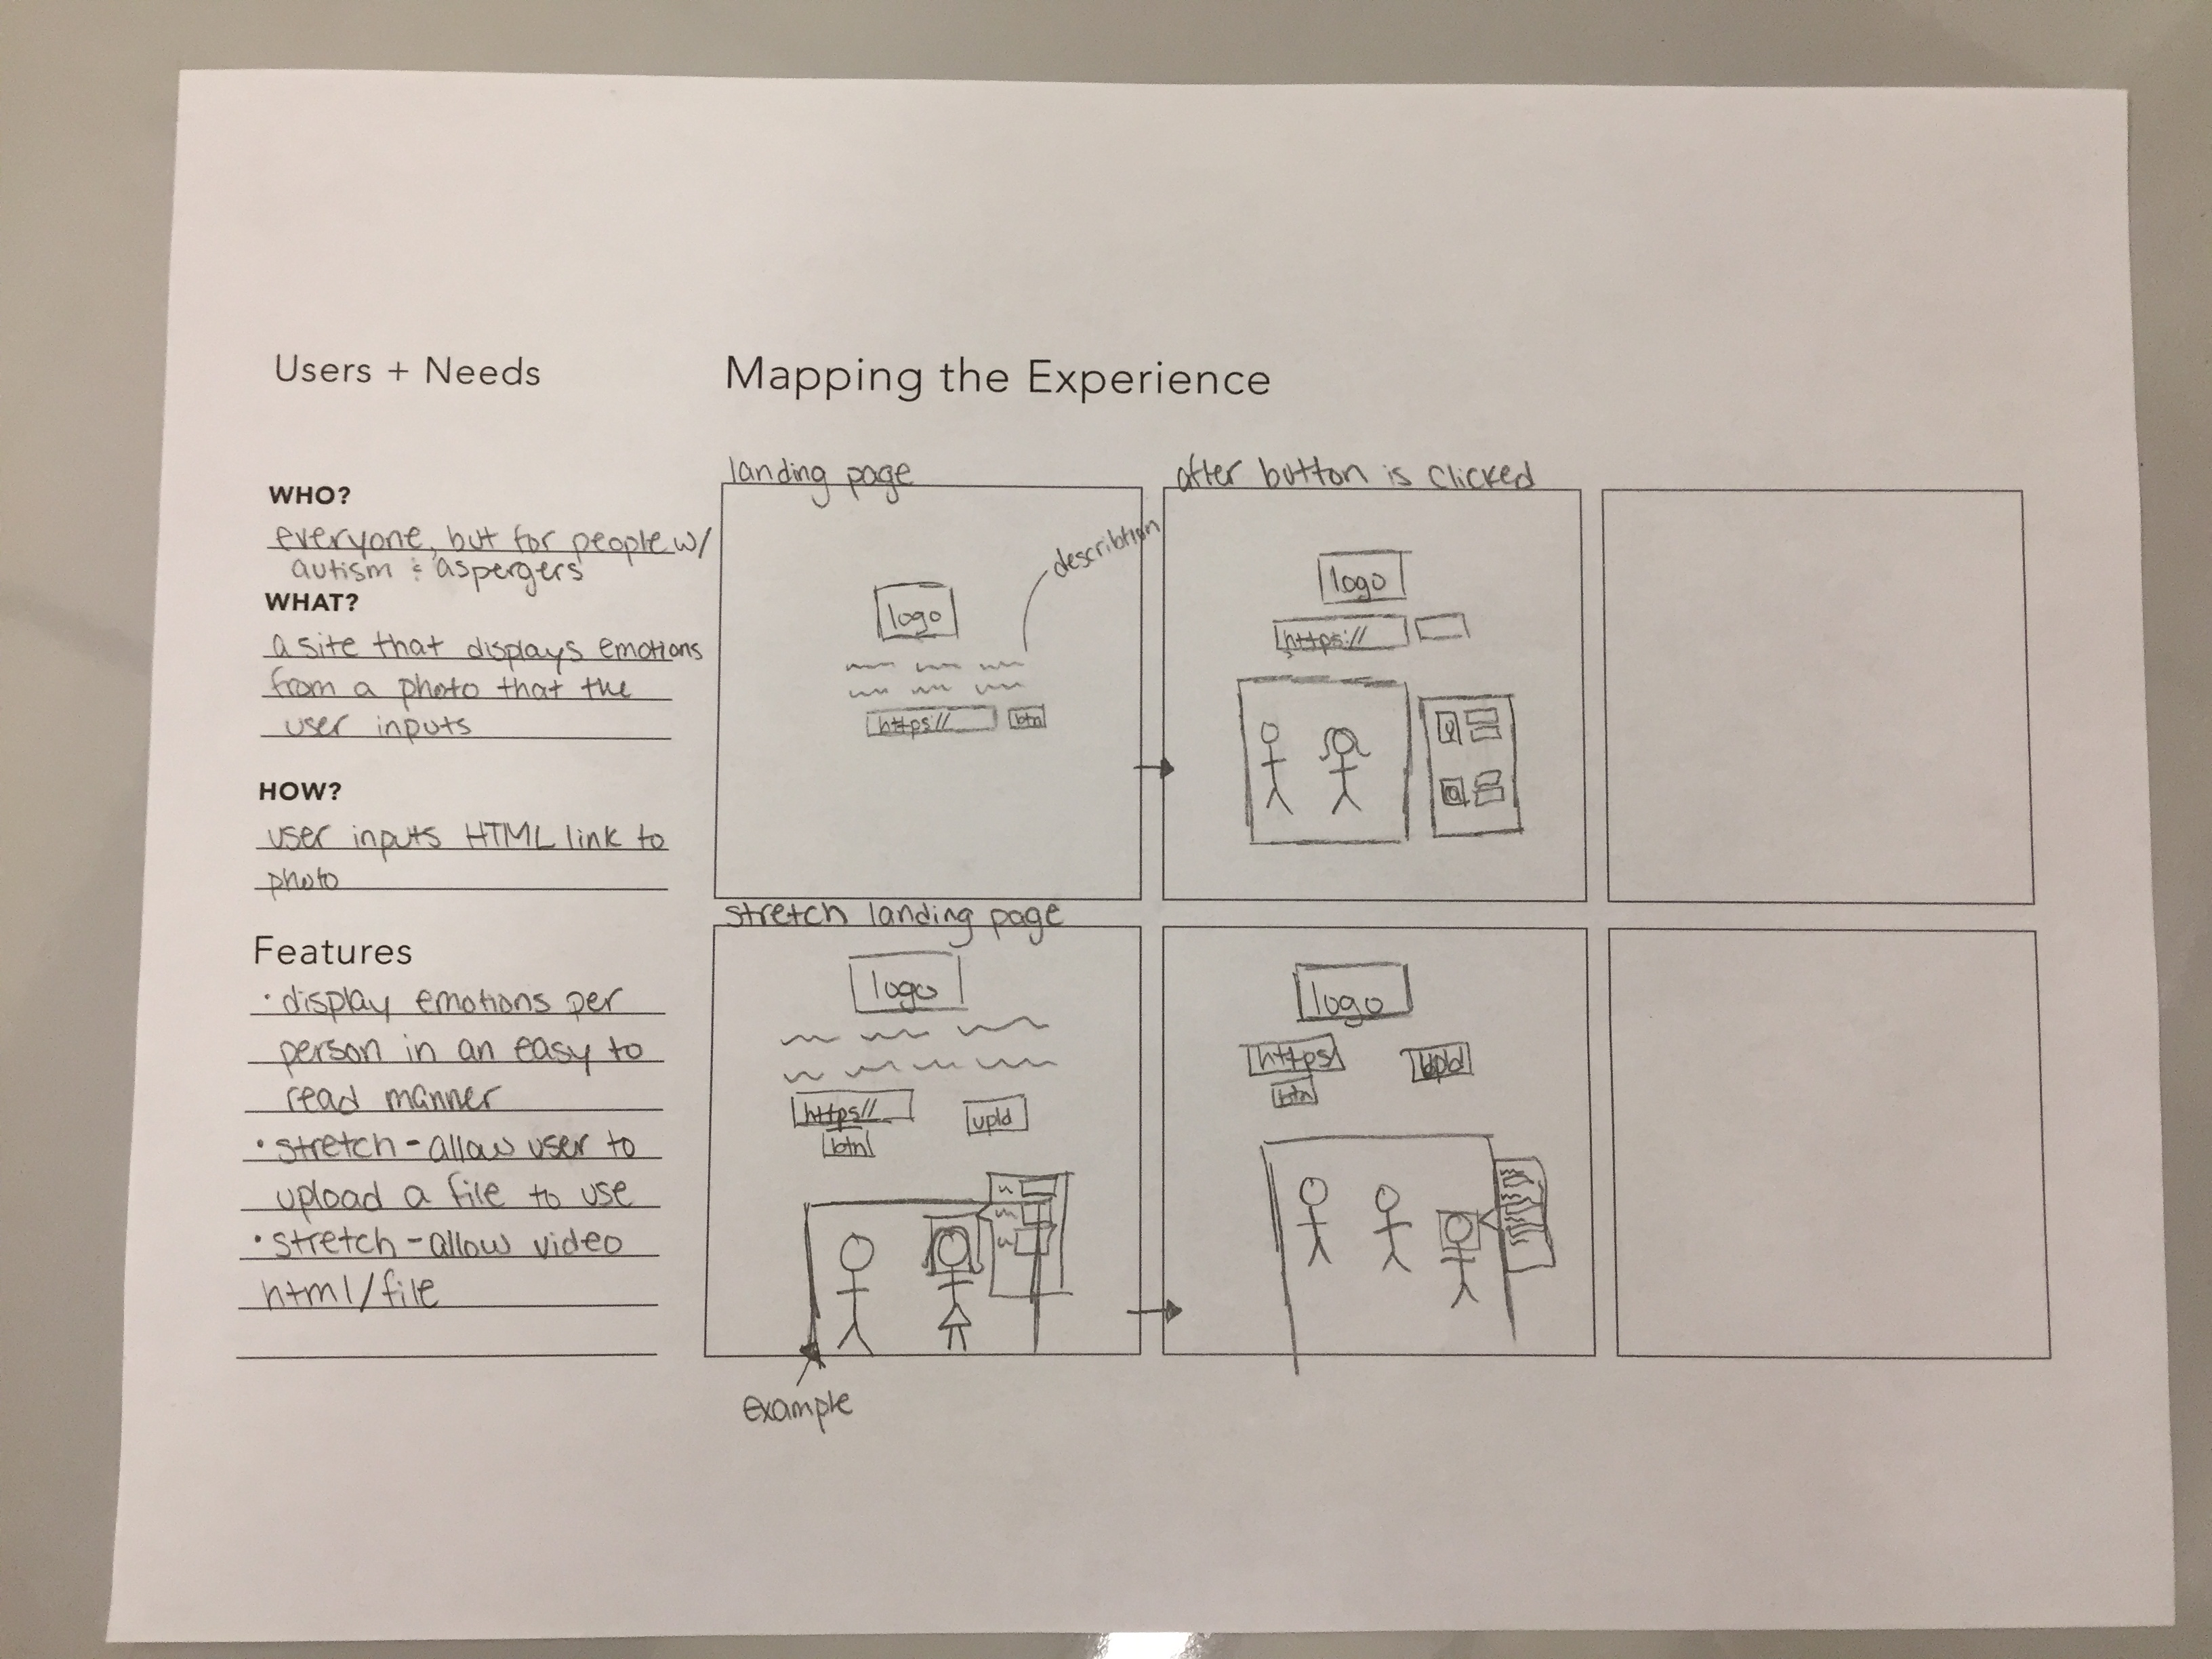 Users + Needs
WHO?
everyone, but for people w/
autism & aspergers
WHAT?
a site that displays emotions
from a photo that the
user inputs
HOW?
user inputs HTML link to
photo
Features
• display emotions per
person in an easy to
read manner
• stretch - allow user to
upload a file to use
• stretch - allow video
html/file
Mapping the Experience
landing page
logo
describtion
https://
btn
after button is clicked
logo
https://
stretch landing page
logo
https//
btn
upld
example
logo
https/
btn
upld